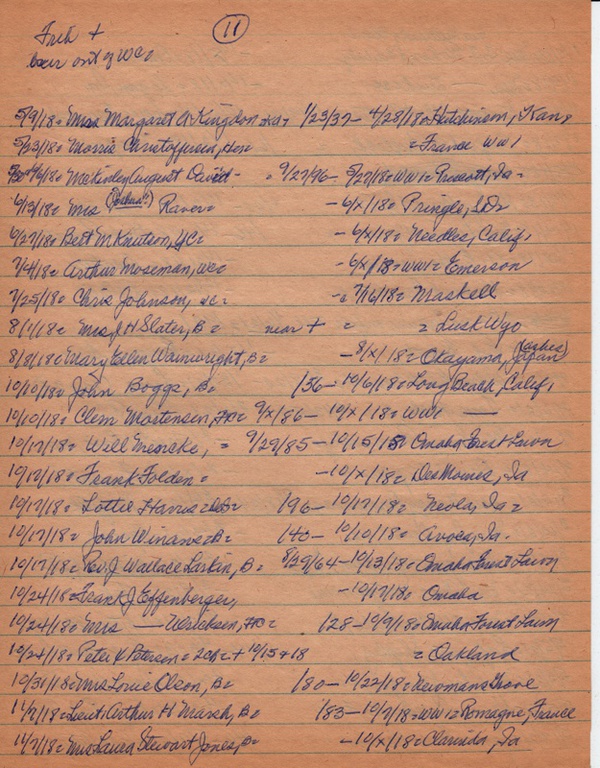 11
Fuel +
out of WC=
5/9/18= Mrs Margaret A Kingdon, 1/23/37- 4/28/18= Hutchinson, Kan,
5/23/18= Morris Christoffersen, = France WW1
McKinley August David = 9/27/96- 5/27/18= WW1= Prescott, Ia=
6/13/18= Mrs (Joshua?) Raver= -6/x/18= Pringle, SD=
6/27/18= Bert M Knutson, WC= -6/x/18= Needles, Calif,
7/4/18= Arthur Moseman, WC= -6/x/18= WW1= Emerson
7/25/18= Chris Johnson, WC= -=7/16/18= Maskell
8/1/18= Mrs J H Slater, B= near + = = Lusk Wyo
8/8/18= Mary Ellen Wainwright, B= -8/x/18= Okayama, Japan (ashes)
10/10/18= John Boggs, B= /36- 10/6/18= Long Beach, Calif,
10/10/18= Clem Mortensen, 9/x/86- 10/x/18= WW1 —
10/17/18= Will Mencke, = 9/29/85- 10/15/18= Omaha Forest Lawn
10/17/18= Frank Folden= -10/x/18= Des Moines, Ia
10/17/18= Lottie Harris= /96- 10/17/18= Neola, Ia=
10/17/18= John Winans= B= /40- 10/10/18= Avoca, Ia.
10/17/18= Rev. J Wallace Larkin, B= 8/29/64- 10/13/18= Omaha Forest Lawn
10/24/18= Frank J Effenberger, -10/17/18= Omaha
10/24/18= Mrs — Ulricksen, /28- 10/9/18= Omaha Forest Lawn
10/24/18= Peter K Peterson= + 10/15+18 = Oakland
10/31/18= Mrs Louie Olson, B= /80- 10/22/18= Newmans Grove
11/7/18= Lieut Arthur H Marsh, B= /83- 10/7/18= WW1= Romagne, France
11/7/18= Mrs Laura Stewart Jones, B= -10/x/18= Clarinda, Ia